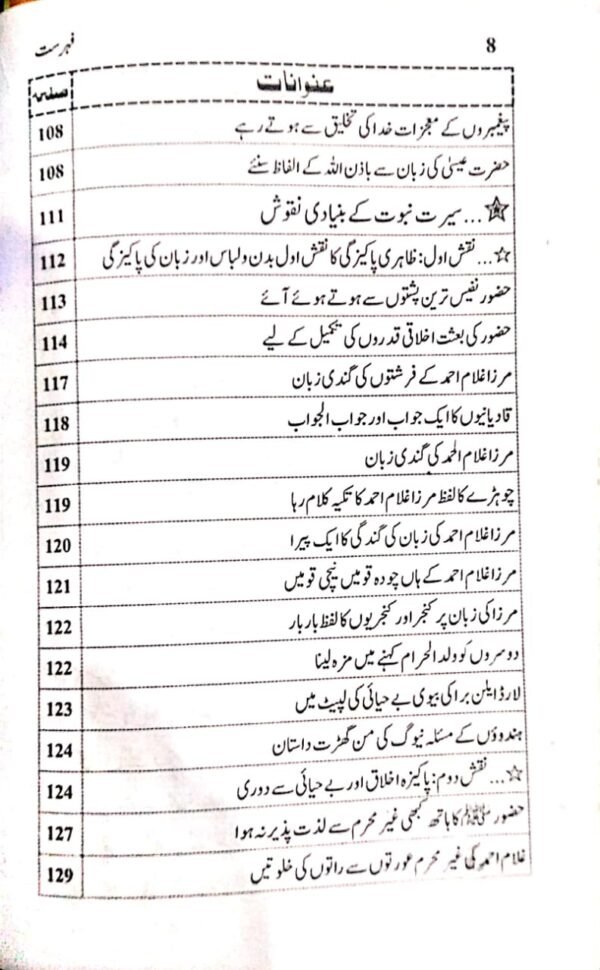 8
فہرست
عنوانات
صفحہ
پیغمبروں کے معجزات خدا کی تخلیق سے ہوتے رہے
108
حضرت عیسیٰ کی زبان سے باذن اللہ کے الفاظ سنئے
108
☆... سیرت نبوت کے بنیادی نقوش
111
☆... نقش اول: ظاہری پاکیزگی کا نقش اول بدن و لباس اور زبان کی پاکیزگی
112
حضور نفیس ترین پشتوں سے ہوتے ہوئے آئے
113
حضور کی بعثت اخلاقی قدروں کی تکمیل کے لیے
114
مرزا غلام احمد کے فرشتوں کی گندی زبان
117
قادیانیوں کا ایک جواب اور جواب الجواب
118
مرزا غلام احمد کی گندی زبان
119
چوہڑے کا لفظ مرزا غلام احمد کا تکیہ کلام رہا
119
مرزا غلام احمد کی زبان کی گندگی کا ایک پیرا
120
مرزا غلام احمد کے ہاں چودہ قومیں نیچی قومیں
121
مرزا کی زبان پر کنجر اور کنجریوں کا لفظ بار بار
122
دوسروں کو ولد الحرام کہنے میں مزہ لینا
122
لارڈ ایلن برا کی بیوی بے حیائی کی لپیٹ میں
123
ہندوؤں کے مسئلہ نیوگ کی من گھڑت داستان
124
☆... نقش دوم: پاکیزہ اخلاق اور بے حیائی سے دوری
124
حضور ﷺ کا ہاتھ کبھی غیر محرم سے لذت پذیر نہ ہوا
127
غلام احمد کی غیر محرم عورتوں سے راتوں کی خلوتیں
129